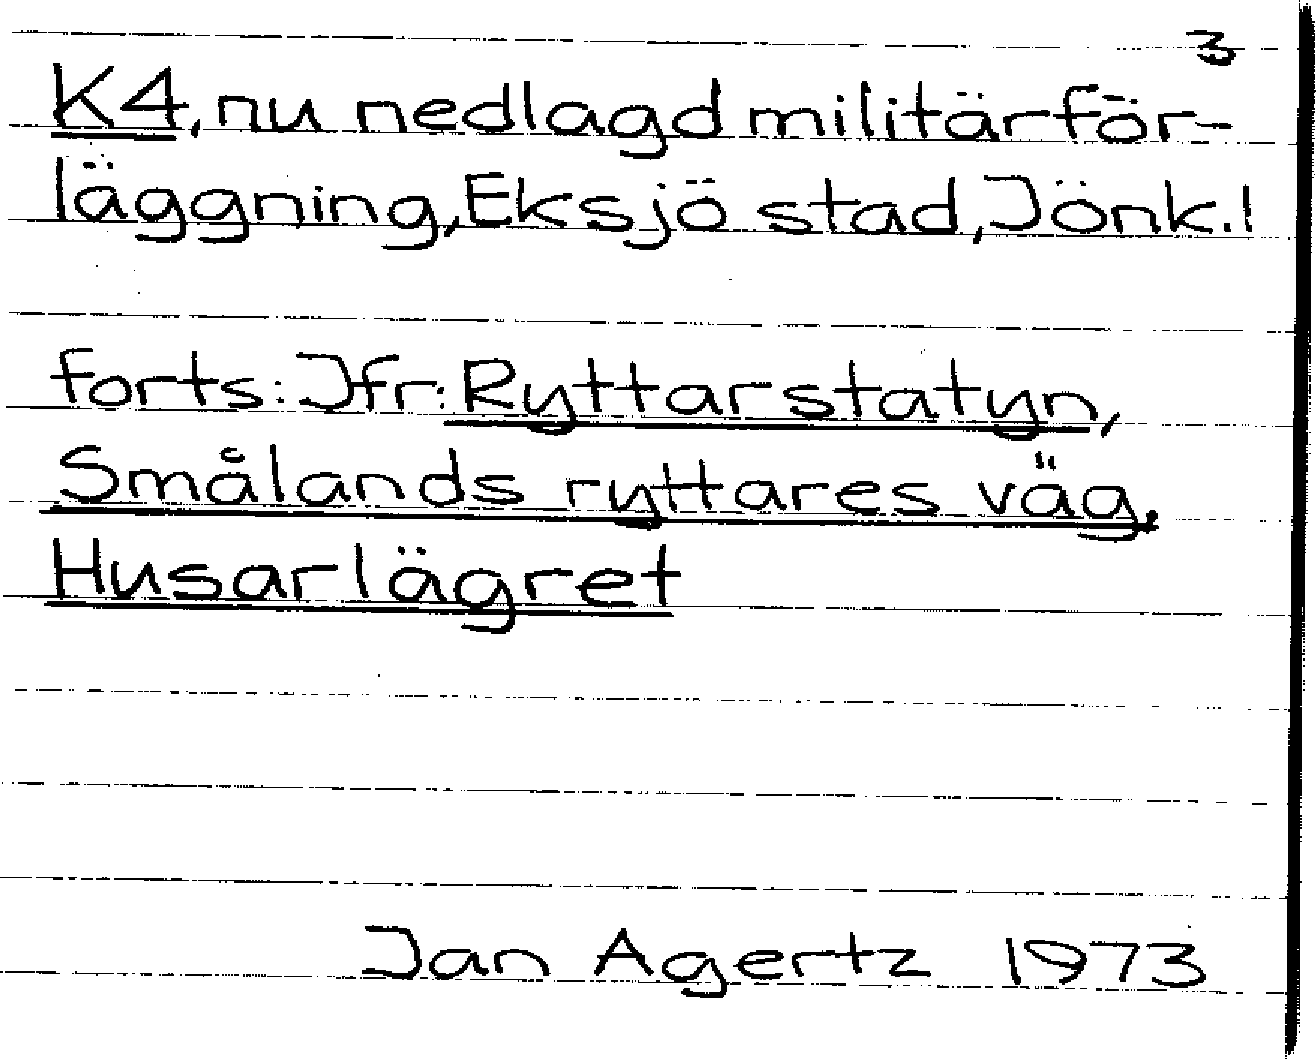 3
K4, nu nedlagd militärför-
läggning, Eksjö stad, Jönk. l
forts: Jfr: Ryttarstatyn,
Smålands ryttares väg,
Husarlägret
Jan Agertz 1973